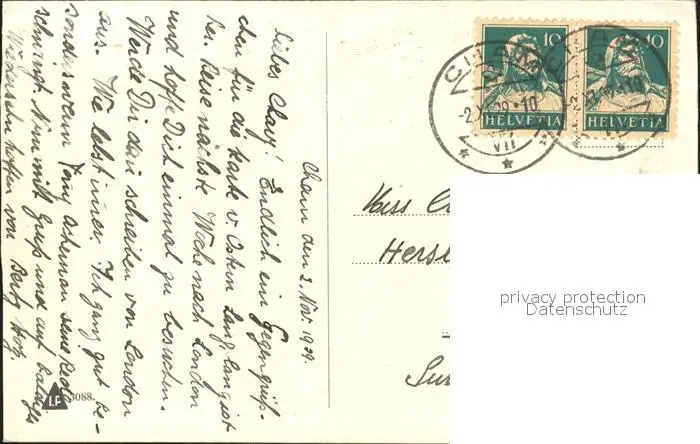 Cham den 2. Nov. 1929.
Liebes Clary! Endlich ein Gegengrüß-
chen für die Karte v. Ostern. Lang, lang ist
her. Reise nächste Woche nach London
und hoffe Dich einmal zu besuchen.
Werde Dir dan schreiben von London
aus. Wie lebst immer. Ich ganz gut be-
sonders wenn
schwingt. Nun mit Gruß und auf baldiges
Wiedersehn hoffen von Berty
3088.
10 10
HELVETIA HELVETIA
CHAM
VII
Miss
Herse
Sur
privacy protection
Datenschutz